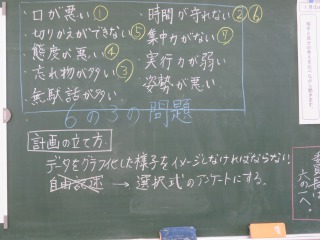 口が悪い ①
切りかえができない ⑤
態度が悪い ④
忘れ物が多い ③
無駄話が多い
時間が守れない ② ⑥
集中力がない ⑦
実行力が弱い
姿勢が悪い
6の3の問題
計画の立て方
データをグラフ化した様子をイメージしなければならない。
自由記述 → 選択式のアンケートにする。
六の一へ!